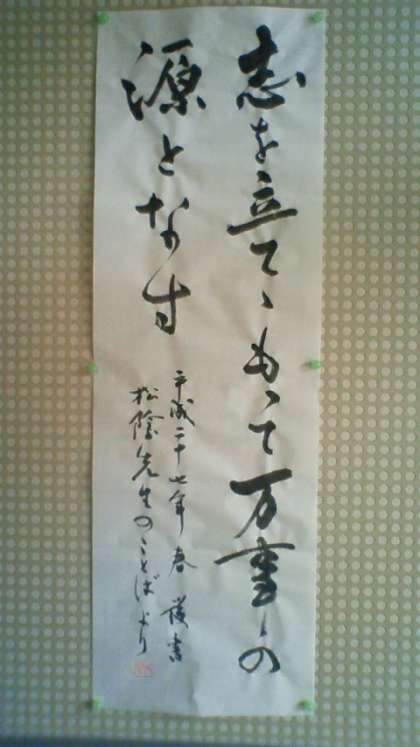 志を立てゝもって万事の
源となす
平成二十七年春 謹書
松陰先生のことばより